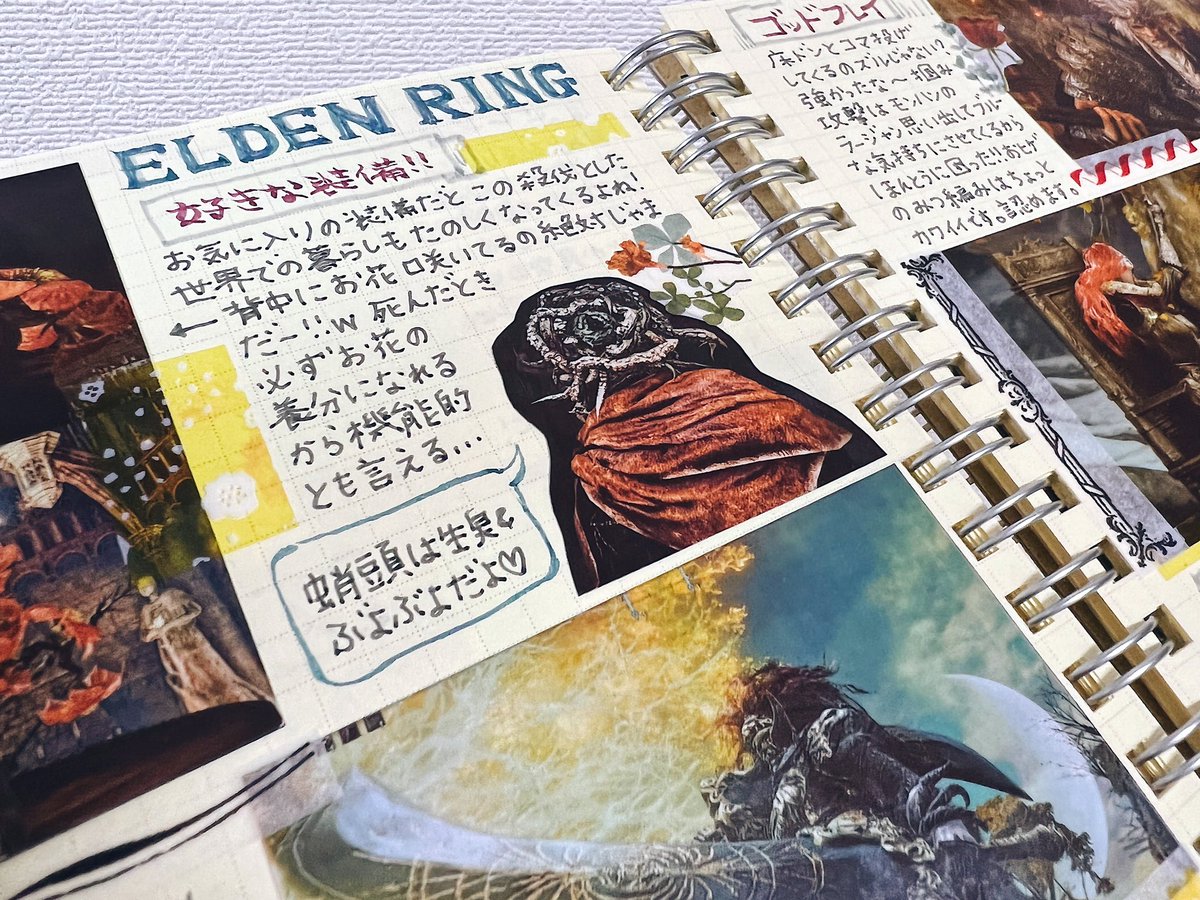 ELDEN RING
好きな装備!!
お気に入りの装備だとこの殺伐とした
世界での暮らしもたのしくなってくるよね!
← 背中にお花咲いてるの絶対じゃま
だー!!w 死んだとき
必ずお花の
養分になれる
から機能的
とも言える…
蛸頭は生臭&
ぶよぶよだよ♡
ゴッドフレイ
床ドンとコマ投げ
してくるのズルじゃない?
強かったな〜掴み
攻撃はモンハンの
ラージャン思い出してブルー
な気持ちにさせてくるから
ほんとうに困った!!おヒゲ
のみつ編みはちょっと
カワイイです。認めます。